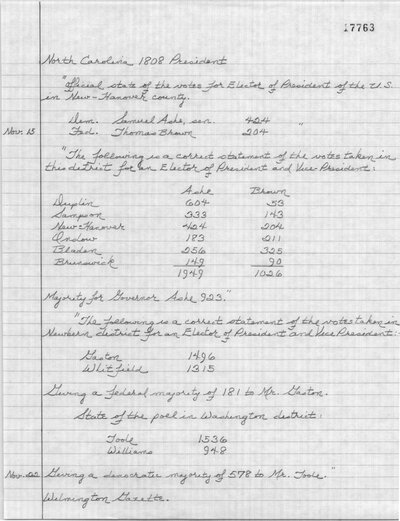 17763
North Carolina 1808 President
"Official state of the votes for Elector of President of the U.S.
in New-Hanover county.
Dem. Samuel Ashe, sen. 424 "
Nov. 15 Fed. Thomas Brown 204
"The following is a correct statement of the votes taken in
this district for an Elector of President and Vice-President:
Ashe Brown
Duplin 604 53
Sampson 333 143
New Hanover 424 204
Onslow 183 211
Bladen 256 325
Brunswick 149 90
1949 1026
Majority for Governor Ashe 923."
"The following is a correct statement of the votes taken in
Newbern district for an Elector of President and Vice President:
Gaston 1496
Whitfield 1315
Giving a federal majority of 181 to Mr. Gaston.
State of the poll in Washington district:
Toole 1536
Williams 948
Nov. 22 Giving a democratic majority of 578 to Mr. Toole."
Wilmington Gazette.